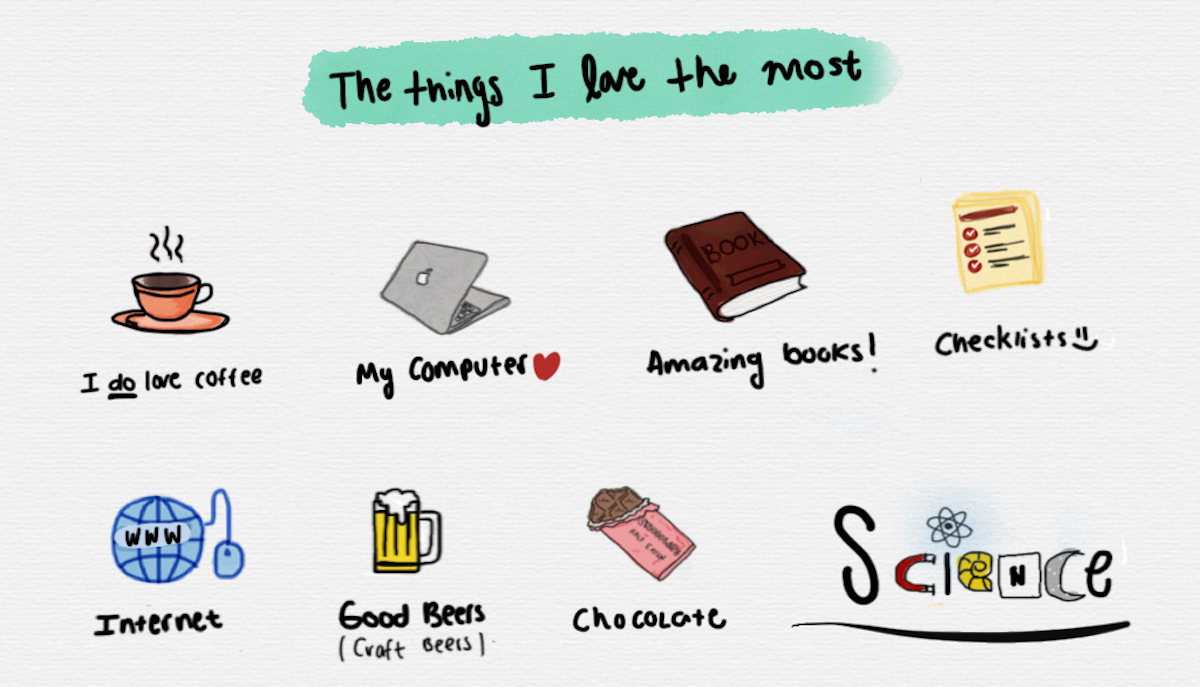 The things I love the most
BOOK
I do love coffee
My Computer
Amazing books!
Checklists
WWW
Internet
Good Beers
(Craft Beers)
Chocolate
Science